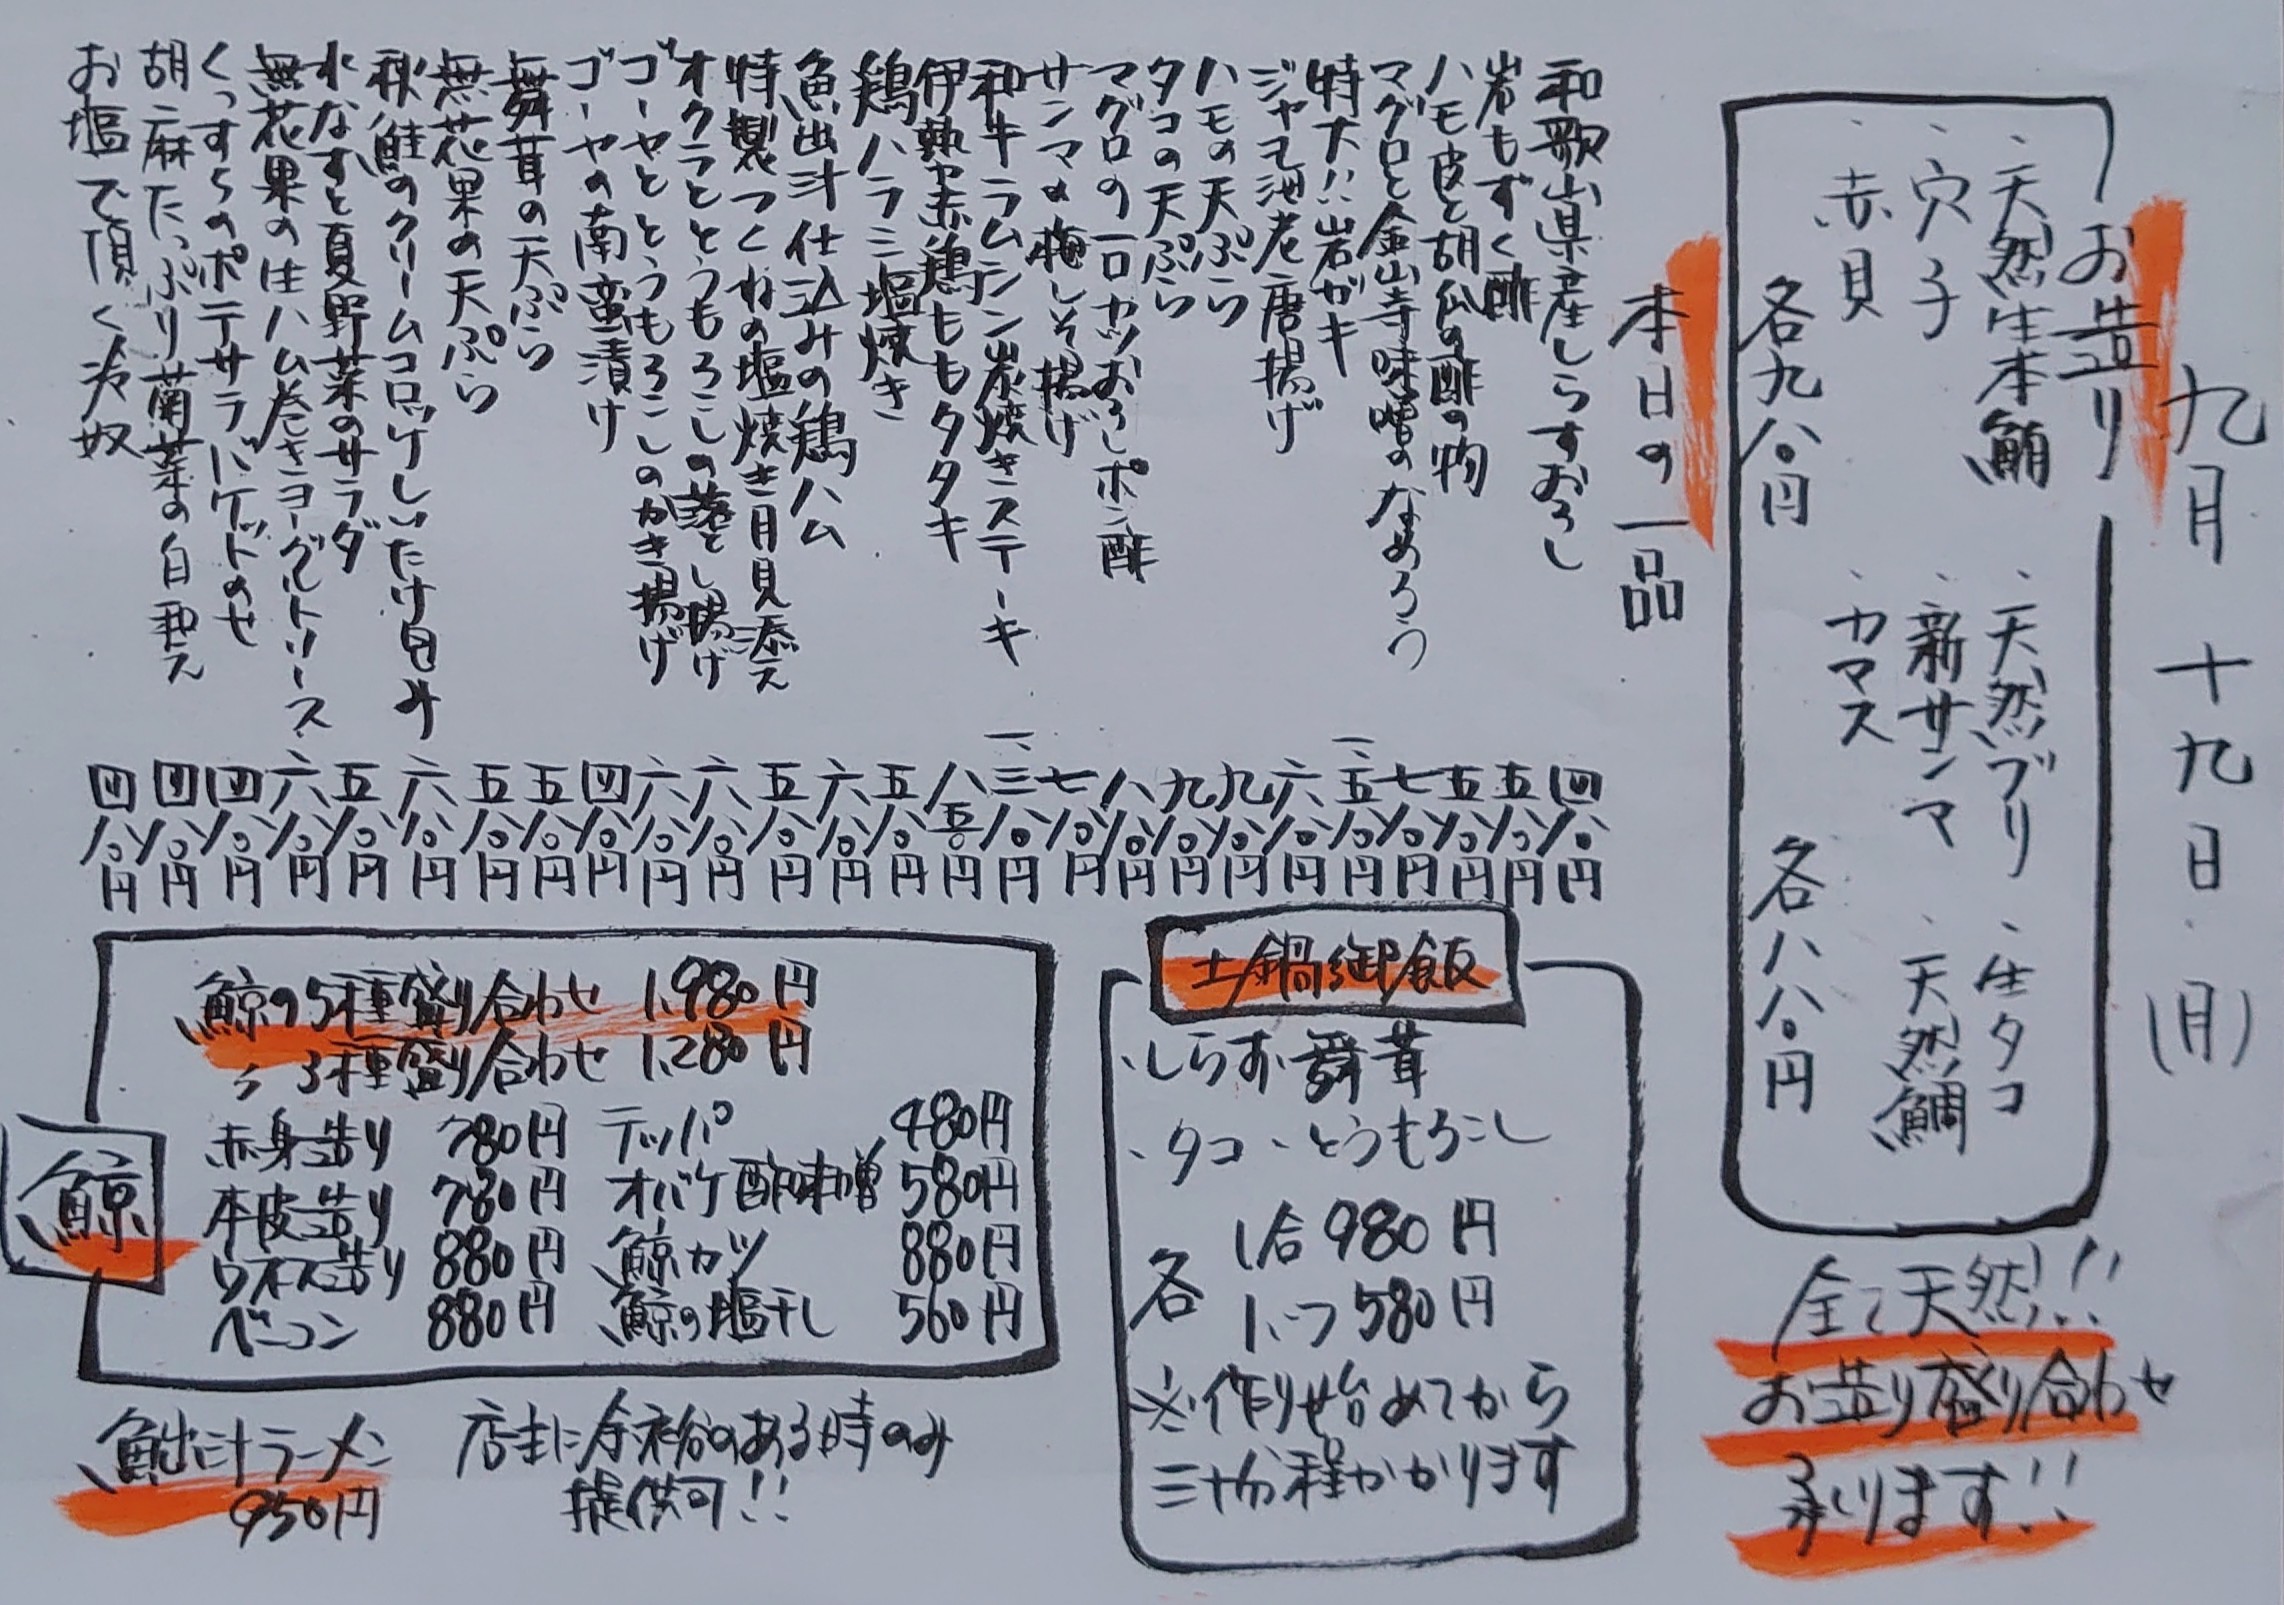 九月十九日(月)
お造り
、天然生本鮪
、天然ブリ
、生タコ
、穴子
、新サンマ
、天然鯛
、赤貝
、カマス
各九八〇円
各八八〇円
全て天然!!
お造り盛り合わせ
承ります!!
本日の一品
和歌山県産しらすおろし 四八〇円
岩もずく酢 五八〇円
ハモ皮と胡瓜の酢の物 五八〇円
マグロと金山寺味噌のなめろう 七八〇円
特大!!岩ガキ 一、五八〇円
ジャモ海老唐揚げ 六八〇円
ハモの天ぷら 九八〇円
タコの天ぷら 九八〇円
マグロの一口カツおろしポン酢 八八〇円
サンマの梅しそ揚げ 七八〇円
和牛ラムシン炭焼きステーキ 一、三八〇円
伊勢赤鶏ももタタキ 八五〇円
鶏ハラミ塩焼き 五八〇円
魚出汁仕込みの鶏ハム 六八〇円
特製つくねの塩焼き月見添え 五八〇円
オクラととうもろこしの落とし揚げ 六八〇円
ゴーヤととうもろこしのかき揚げ 六八〇円
ゴーヤの南蛮漬け 四八〇円
舞茸の天ぷら 五八〇円
無花果の天ぷら 五八〇円
秋鮭のクリームコロッケしいたけ包み 六八〇円
水なすと夏野菜のサラダ 五八〇円
無花果の生ハム巻きヨーグルトソース 六八〇円
くっすらのポテサラバゲットのせ 四八〇円
胡麻たっぷり菊菜の白和え 四八〇円
お塩で頂く冷奴 四八〇円
土鍋御飯
、しらす舞茸
、タコ、とうもろこし
各 1合980円
1/2 580円
※作り始めてから
三十分程かかります
鯨
鯨の5種盛り合わせ 1,980円
〃 3種盛り合わせ 1,280円
赤身造り 780円 テッパ 480円
本皮造り 780円 オバケ酢味噌 580円
ウネス造り 880円 鯨カツ 880円
ベーコン 880円 鯨の塩干し 560円
魚出汁ラーメン
950円
店主に余裕のある時のみ
提供可!!